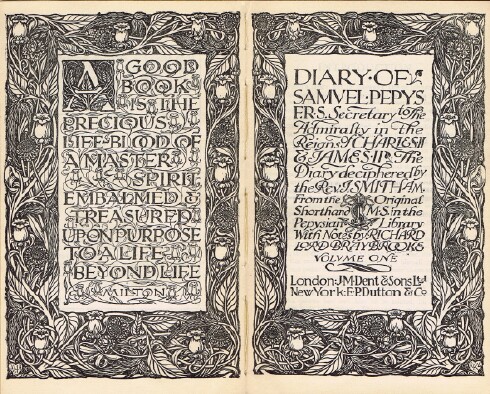 A GOOD
BOOK
IS THE
PRECIOUS
LIFE-BLOOD OF
A MASTER
SPIRIT,
EMBALMED &
TREASURED
UPON PURPOSE
TO A LIFE
BEYOND LIFE
MILTON
DIARY·OF
SAMVEL·PEPYS
F.R.S. Secretary to The
Admiralty in the
Reigns of CHARLES II
& JAMES II. The
Diary deciphered by
the Rev. J. SMITH A.M.
From the Original
Shorthand M.S. in the
Pepysian Library
With Notes by RICHARD
LORD BRAYBROOKE
VOLUME ONE
London: J.M. Dent & Sons Ltd
New York: E.P. Dutton & Co